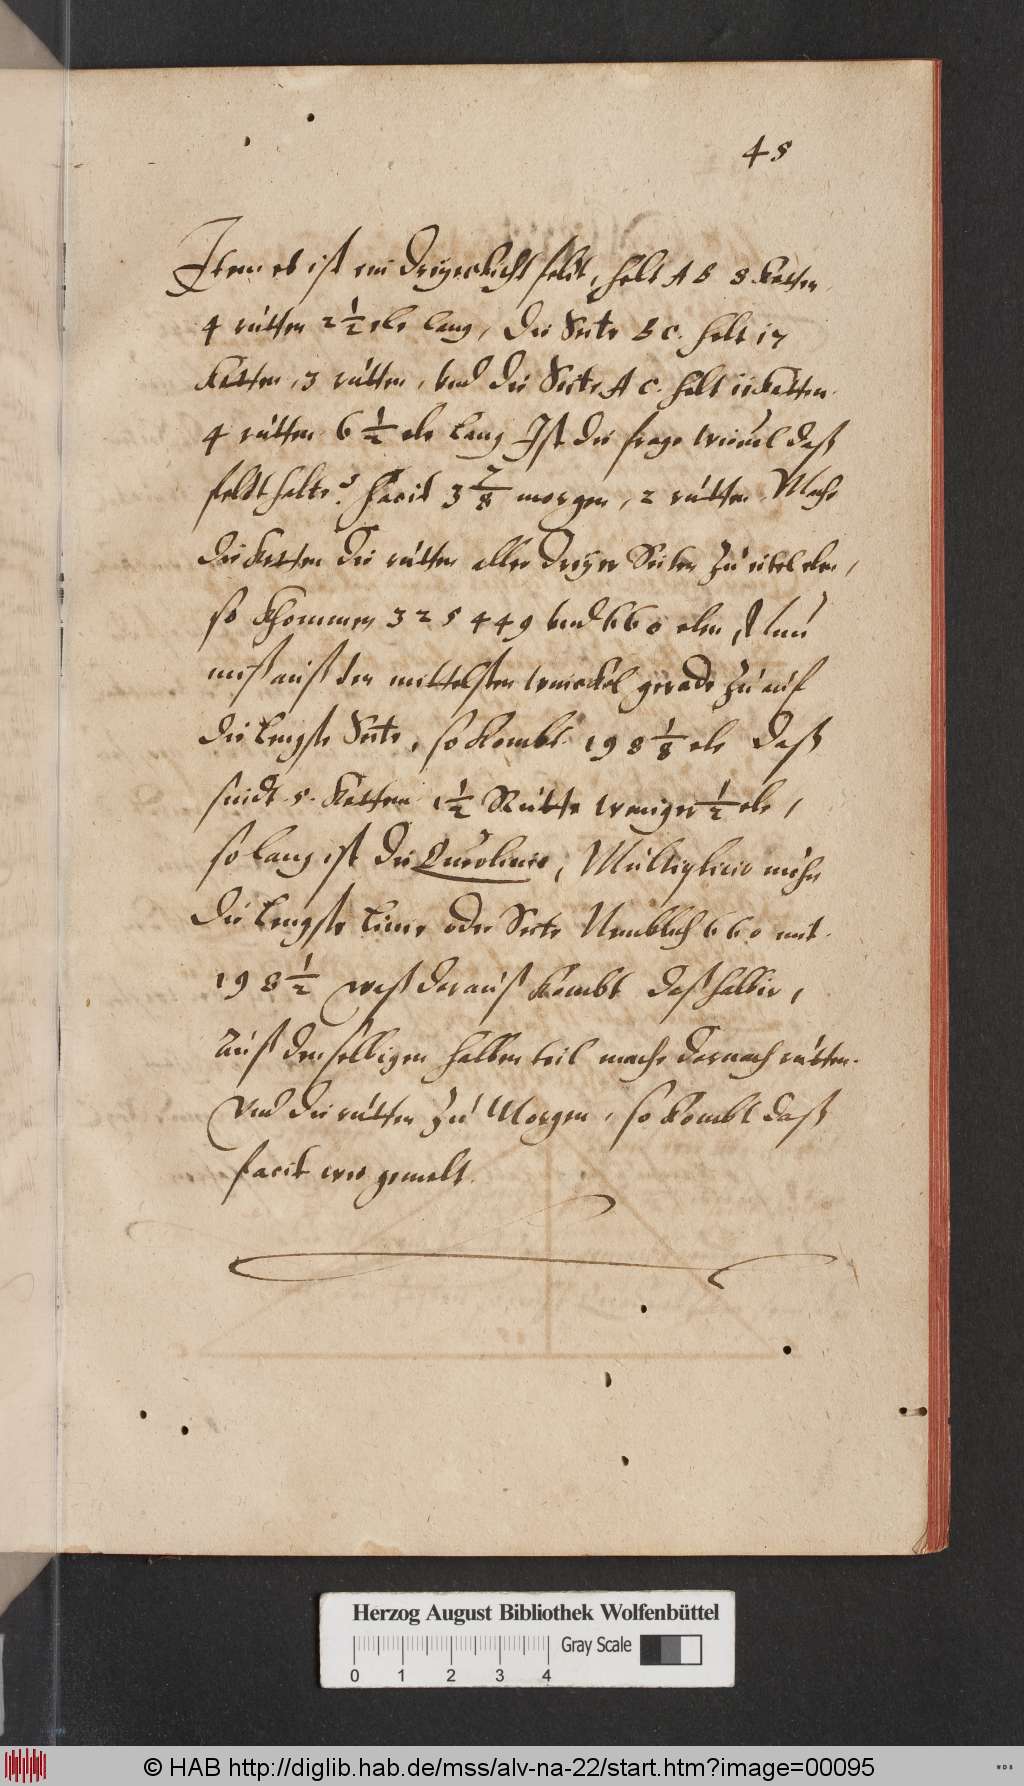 45
Item es ist ein dreyeckicht feldt, helt A B 8 Ketten
4 rutten 2 1/2 ele lang, die Seite B C. helt 17
Ketten, 3 rutten, vnd die Seite A C. helt 11 Ketten
4 rutten 6 1/2 ele lang Ist die frage wieuiel daß
feldt halte? Facit 3 7/8 morgen, 2 rutten. Mache
die Ketten die rutten aller dreyer Seiten zu eitel elen,
so khommen 325 449 vnd 660 elen, Nun
miß auß dem mittelsten winckel gerade zu auf
die lengste Seite, so kombt 198 1/8 ele daß
sindt 5. Ketten 1 1/2 Rutte weniger 1/2 ele,
so lang ist die, Multiplicir nuhn
die lengste Linie oder Seite Nemblich 660 mit
198 1/2 waß darauß kombt daß halbir,
Auß demselbigen halben teil mache darnach rutten
vnd die rutten zu Morgen, so kombt daß
facit wie gemelt.
Herzog August Bibliothek Wolfenbüttel
Gray Scale
0 1 2 3 4
© HAB http://diglib.hab.de/mss/alv-na-22/start.htm?image=00095